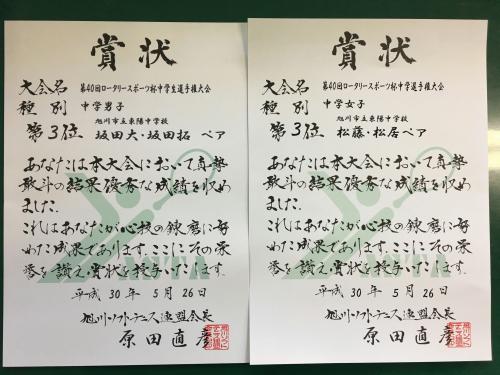 賞状
大会名 第40回ロータリースポーツ杯中学生選手権大会
種別 中学男子
旭川市立東陽中学校
第3位 坂田大・坂田拓 ペア
あなたは本大会において真摯
敢斗の結果優秀な成績を収め
ました
これはあなたが心技の錬磨に努
めた成果であります ここにその栄
誉を讃え賞状を授与いたします
平成 30 年 5 月 26 日
旭川ソフトテニス連盟会長
原田直彦
賞状
大会名 第40回ロータリースポーツ杯中学選手権大会
種別 中学女子
旭川市立東陽中学校
第3位 松藤・松居ペア
あなたは本大会において真摯
敢斗の結果優秀な成績を収め
ました
これはあなたが心技の錬磨に努
めた成果であります ここにその栄
誉を讃え賞状を授与いたします
平成 30 年 5 月 26 日
旭川ソフトテニス連盟会長
原田直彦